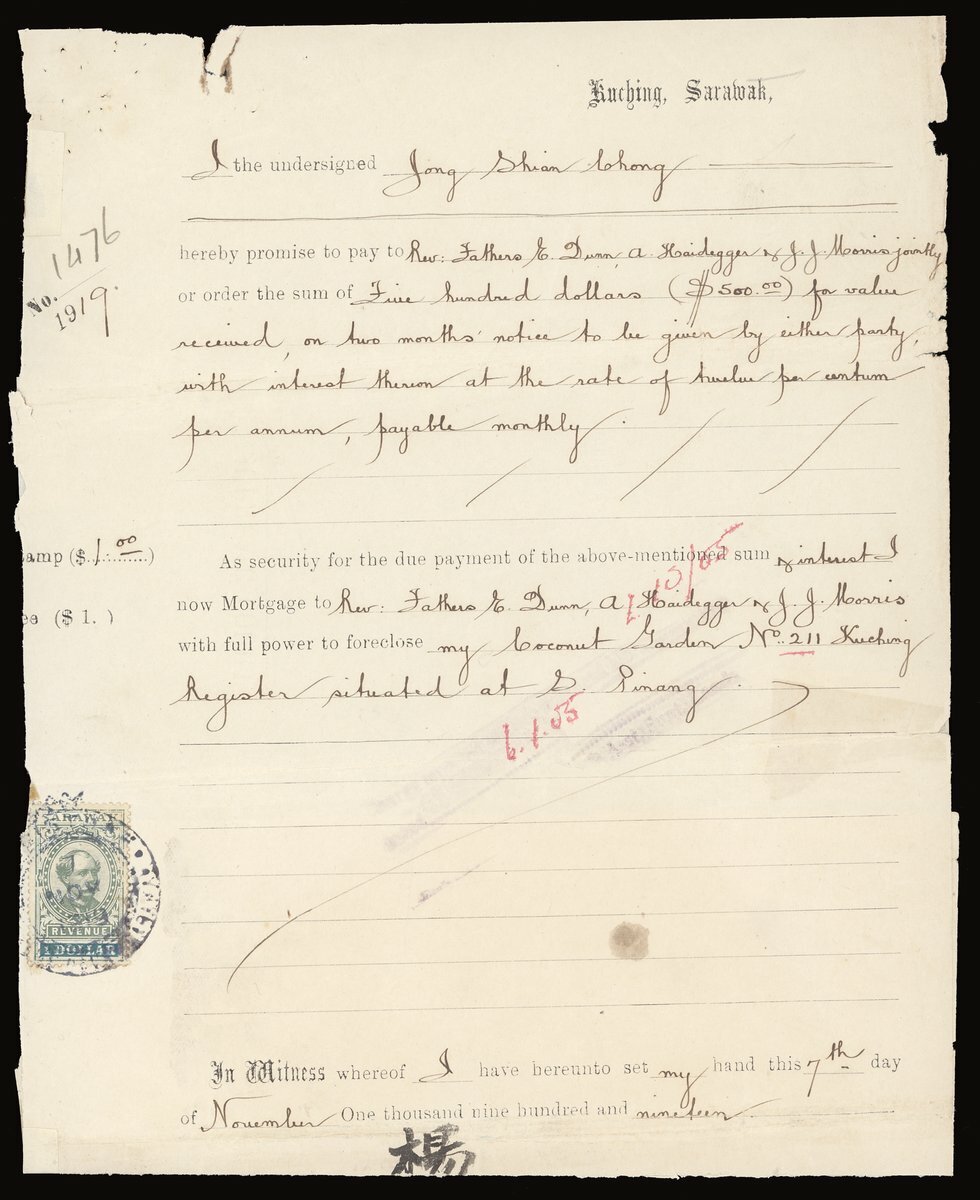 Kuching, Sarawak,
I the undersigned Jong Shian Chong
hereby promise to pay to Rev: Fathers E. Dunn, A. Haidegger & J. J. Morris jointly
No. 1476
1919.
or order the sum of Five hundred dollars ($500.00) for value
received, on two months' notice to be given by either party,
with interest thereon at the rate of twelve per centum
per annum, payable monthly.
tamp ($ 1.00)
As security for the due payment of the above-mentioned sum & interest I
ee ($ 1. )
now Mortgage to Rev: Fathers E. Dunn, A Haidegger & J. J. Morris
with full power to foreclose my Coconut Garden No. 211 Kuching
Register situated at S. Pinang.
6.1.05
SARAWAK
REVENUE
1 DOLLAR
In Witness whereof I have hereunto set my hand this 7th day
of November One thousand nine hundred and nineteen.
楊